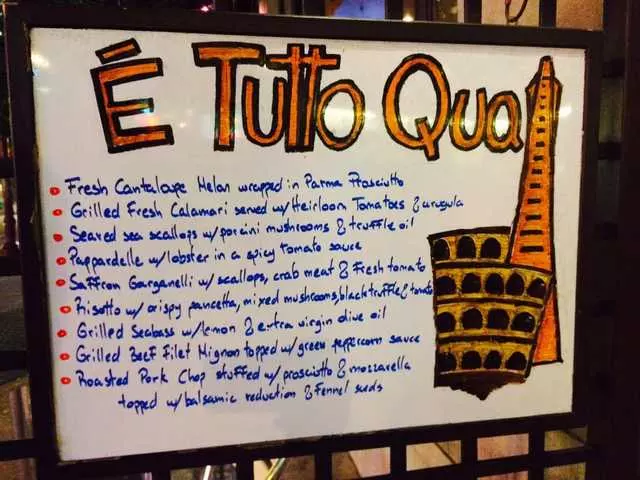 É Tutto Qua
Fresh Cantaloupe Melon wrapped in Parma Prosciutto
Grilled Fresh Calamari served w/Heirloom Tomatoes & arugula
Seared sea scallops w/porcini mushrooms & truffle oil
Pappardelle w/lobster in a spicy tomato sauce
Saffron Garganelli w/scallops, crab meat & Fresh tomato
Risotto w/crispy pancetta, mixed mushrooms, black truffle & tomato
Grilled Seabass w/lemon & extra virgin olive oil
Grilled Beef Filet Mignon topped w/green peppercorn sauce
Roasted Pork Chop stuffed w/prosciutto & mozzarella
topped w/balsamic reduction & Fennel seeds